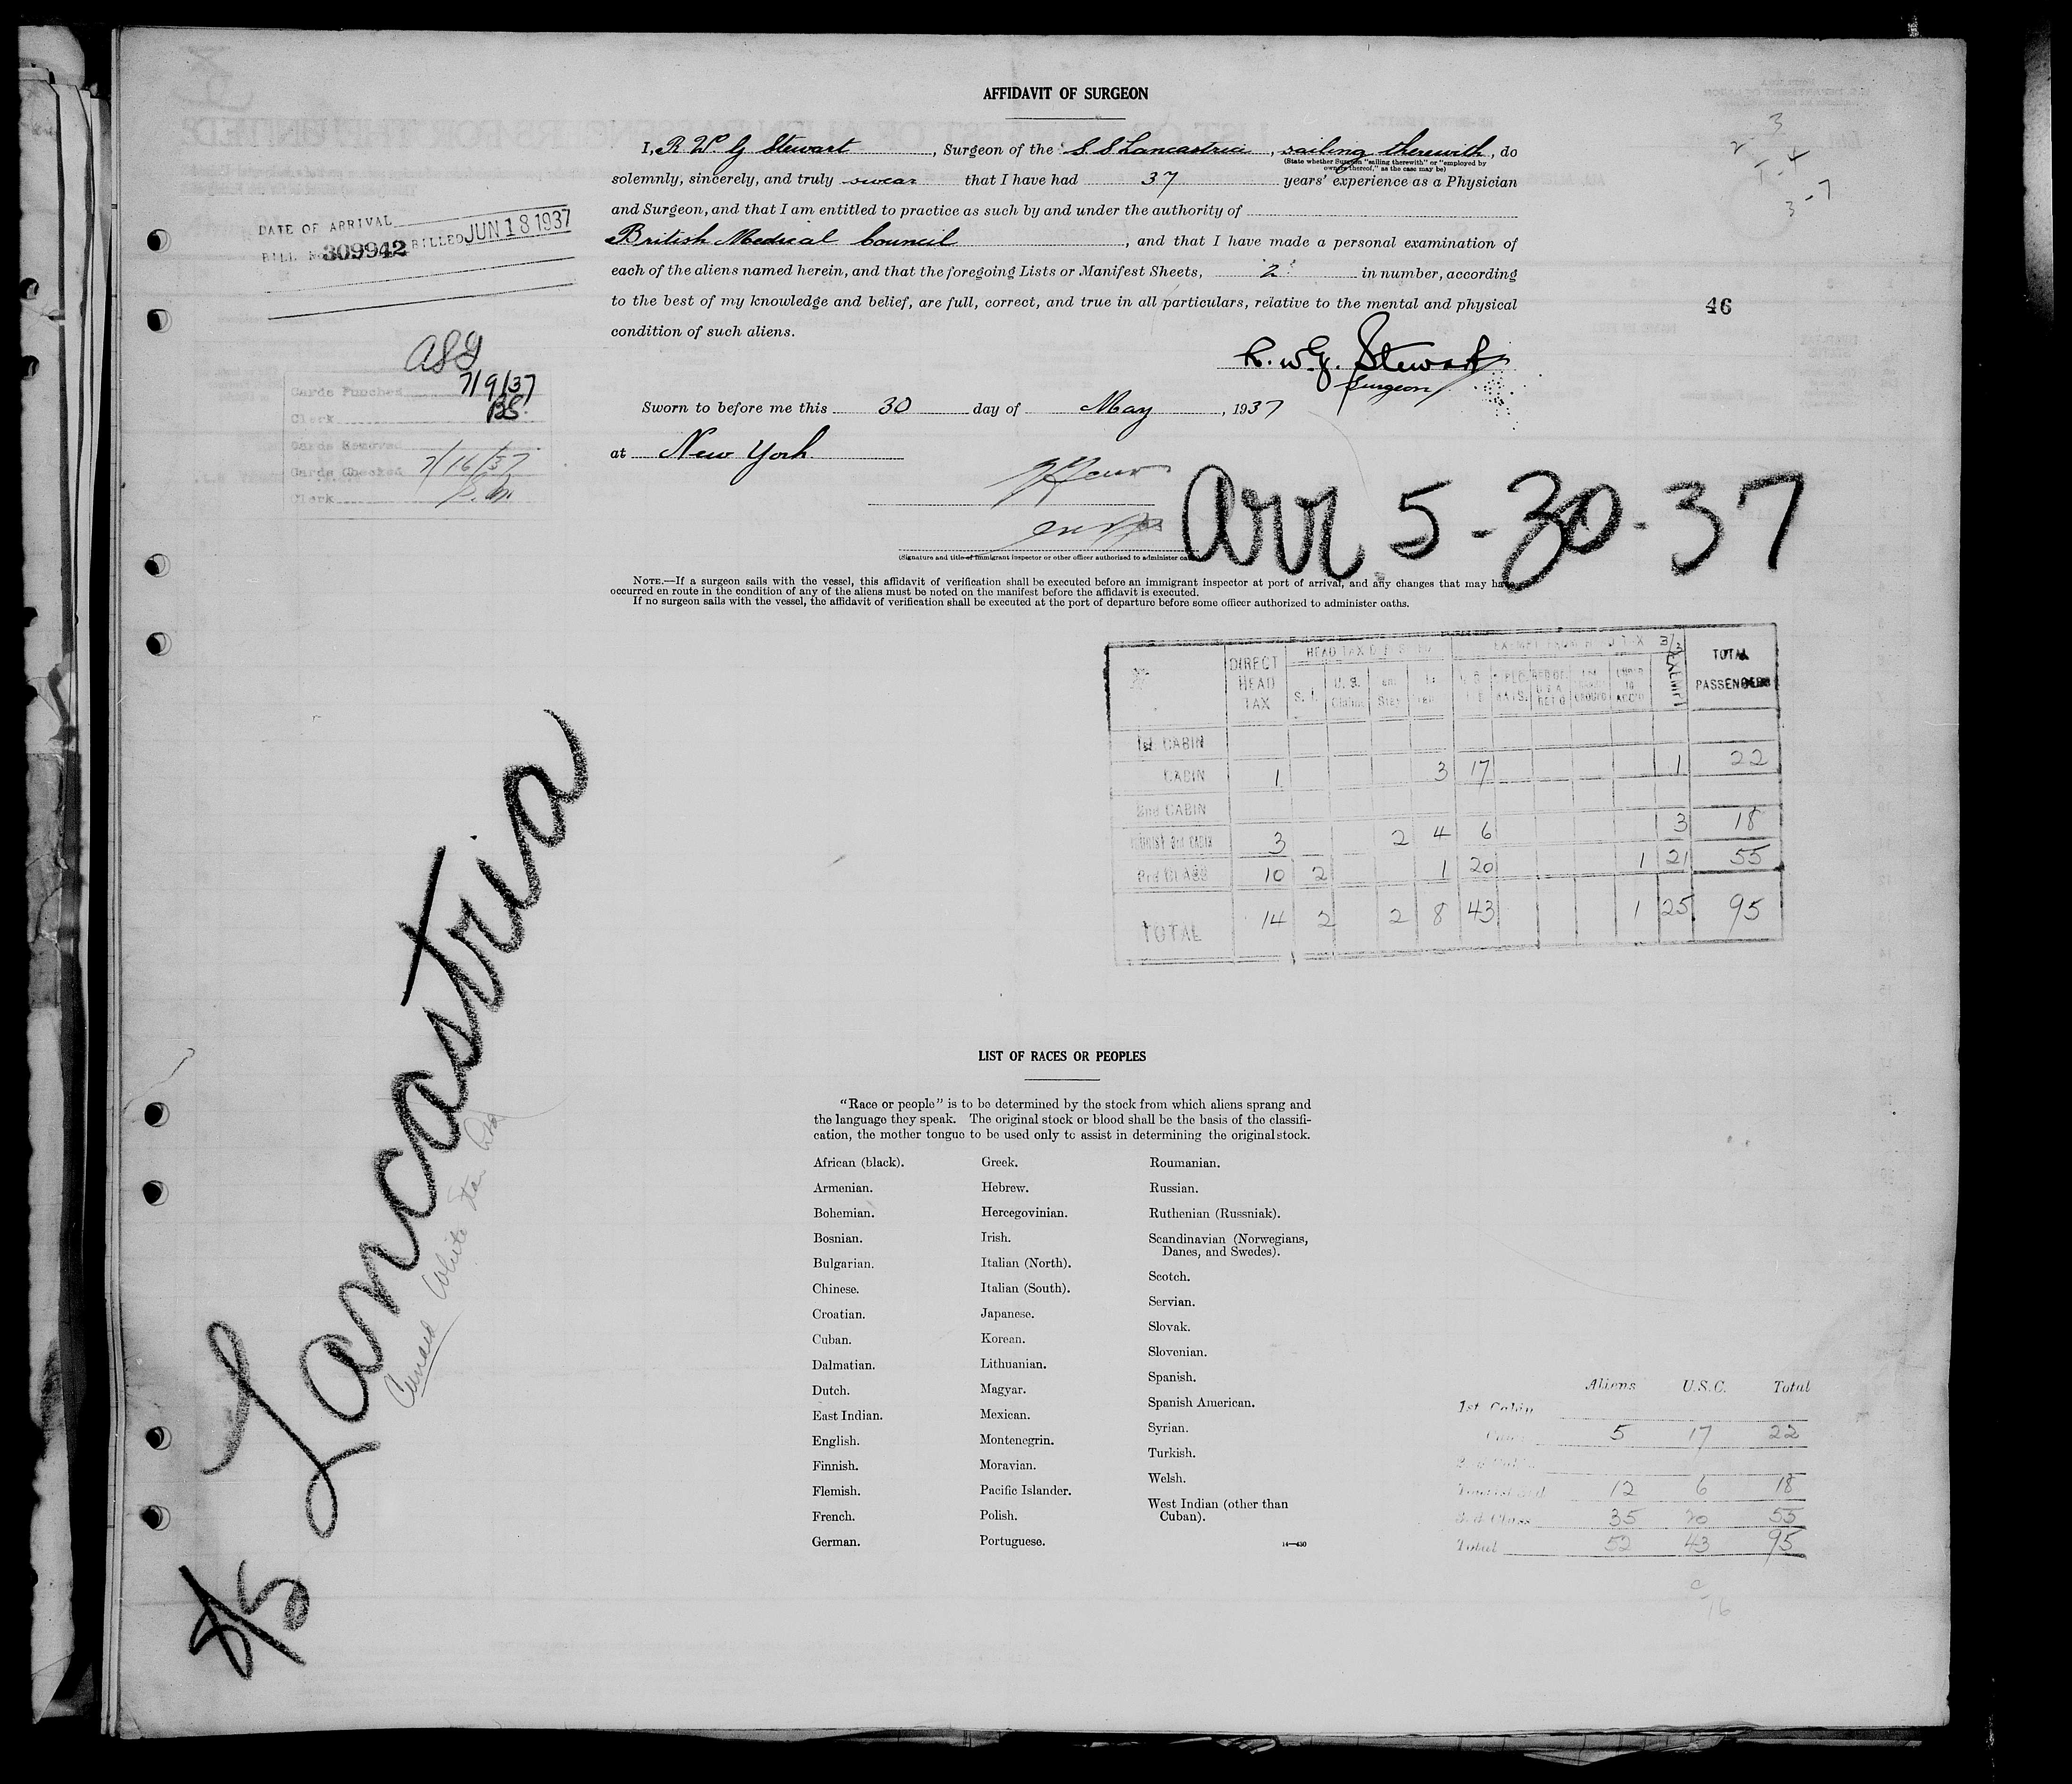 AFFIDAVIT OF SURGEON
I, R W G Stewart, Surgeon of the S S Lancastria, sailing therewith, do
(State whether Surgeon "sailing therewith" or "employed by
owners thereof," as the case may be)
solemnly, sincerely, and truly swear that I have had 37 years' experience as a Physician
and Surgeon, and that I am entitled to practice as such by and under the authority of
British Medical Council, and that I have made a personal examination of
each of the aliens named herein, and that the foregoing Lists or Manifest Sheets, 2 in number, according
to the best of my knowledge and belief, are full, correct, and true in all particulars, relative to the mental and physical
condition of such aliens.
R. W. G. Stewart
Surgeon
Sworn to before me this 30 day of May, 1937
at New York
(Signature and title of immigrant inspector or other officer authorized to administer oaths
Arr 5-30-37
DATE OF ARRIVAL
BILL No 309942 BILLED JUN 18 1937
46
Cards Punched 7/9/37
Clerk BS.
Cards Checked 7/16/37
Clerk
NOTE.—If a surgeon sails with the vessel, this affidavit of verification shall be executed before an immigrant inspector at port of arrival, and any changes that may have
occurred en route in the condition of any of the aliens must be noted on the manifest before the affidavit is executed.
If no surgeon sails with the vessel, the affidavit of verification shall be executed at the port of departure before some officer authorized to administer oaths.
DIRECT HEAD TAX TOTAL PASSENGERS
1st CABIN
CABIN 1 3 17 1 22
2nd CABIN
TOURIST 3rd CABIN 3 2 4 6 3 18
3rd CLASS 10 2 1 20 1 21 55
TOTAL 14 2 2 8 43 1 25 95
S/S Lancastria
Cunard White Star
LIST OF RACES OR PEOPLES
"Race or people" is to be determined by the stock from which aliens sprang and
the language they speak. The original stock or blood shall be the basis of the classifi-
cation, the mother tongue to be used only to assist in determining the original stock.
African (black).
Armenian.
Bohemian.
Bosnian.
Bulgarian.
Chinese.
Croatian.
Cuban.
Dalmatian.
Dutch.
East Indian.
English.
Finnish.
Flemish.
French.
German.
Greek.
Hebrew.
Hercegovinian.
Irish.
Italian (North).
Italian (South).
Japanese.
Korean.
Lithuanian.
Magyar.
Mexican.
Montenegrin.
Moravian.
Pacific Islander.
Polish.
Portuguese.
Roumanian.
Russian.
Ruthenian (Russniak).
Scandinavian (Norwegians,
Danes, and Swedes).
Scotch.
Servian.
Slovak.
Slovenian.
Spanish.
Spanish American.
Syrian.
Turkish.
Welsh.
West Indian (other than
Cuban).
14—430
Aliens U.S.C. Total
1st Cabin
5 17 22
12 6 18
3rd Class 35 20 55
Total 52 43 95